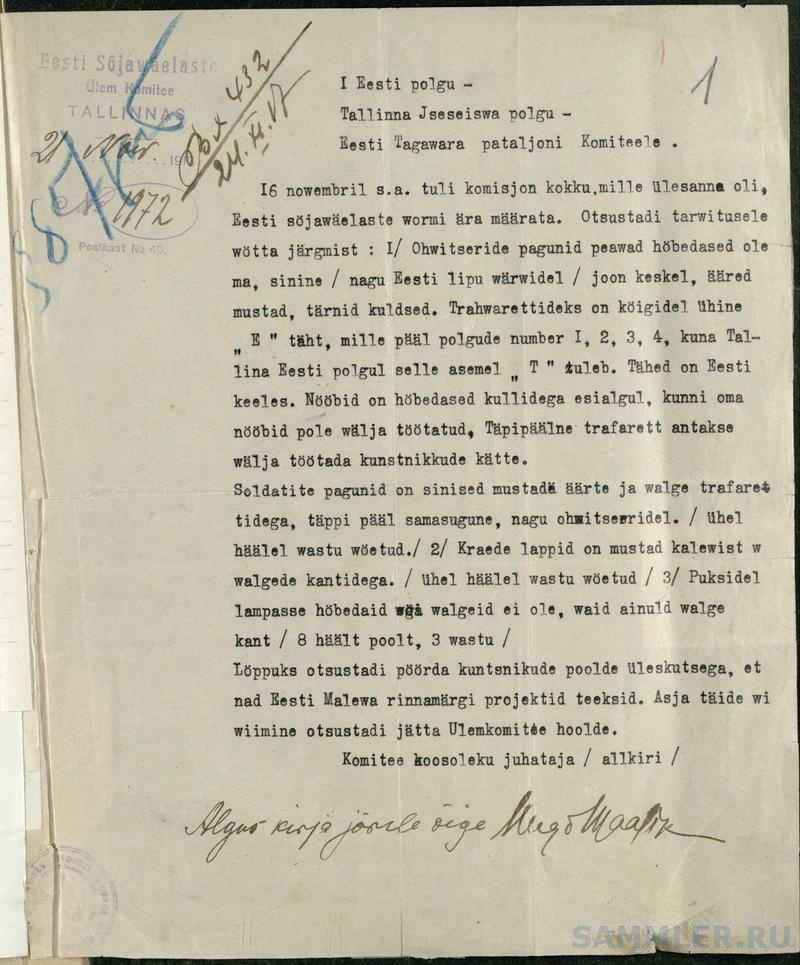 Eesti Sõjawäelaste
Ülem Komitee
TALLINNAS
21 Now. 19
№ 1972
Postkast № 40.
432
24. XI. 17
1
1
I Eesti polgu -
Tallinna Jseseiswa polgu -
Eesti Tagawara pataljoni Komiteele .
I6 nowembril s.a. tuli komisjon kokku,mille ülesanna oli,
Eesti söjawäelaste wormi ära määrata. Otsustadi tarwitusele
wötta järgmist : I/ Ohwitseride pagunid peawad höbedased ole
ma, sinine / nagu Eesti lipu wärwidel / joon keskel, ääred
mustad, tärnid kuldsed. Trahwarettideks on köigidel ühine
„ E " täht, mille pääl polgude number I, 2, 3, 4, kuna Tal-
lina Eesti polgul selle asemel „ T " tuleb. Tähed on Eesti
keeles. Nööbid on höbedased kullidega esialgul, kunni oma
nööbid pole wälja töötatud, Täpipäälne trafarett antakse
wälja töötada kunstnikkude kätte.
Soldatite pagunid on sinised mustadä äärte ja walge trafaret
tidega, täppi pääl samasugune, nagu ohwitseeridel. / ühel
häälel wastu wöetud./ 2/ Kraede lappid on mustad kalewist w
walgede kantidega. / ühel häälel wastu wöetud / 3/ Puksidel
lampasse höbedaid ega walgeid ei ole, waid ainuld walge
kant / 8 häält poolt, 3 wastu /
Löppuks otsustadi pöörda kuntsnikude poolde üleskutsega, et
nad Eesti Malewa rinnamärgi projektid teeksid. Asja täide wi
wiimine otsustadi jätta Ulemkomitee hoolde.
Komitee koosoleku juhataja / allkiri /
Algus kirja järele õige Hugo Maasik
SAMMLER.RU